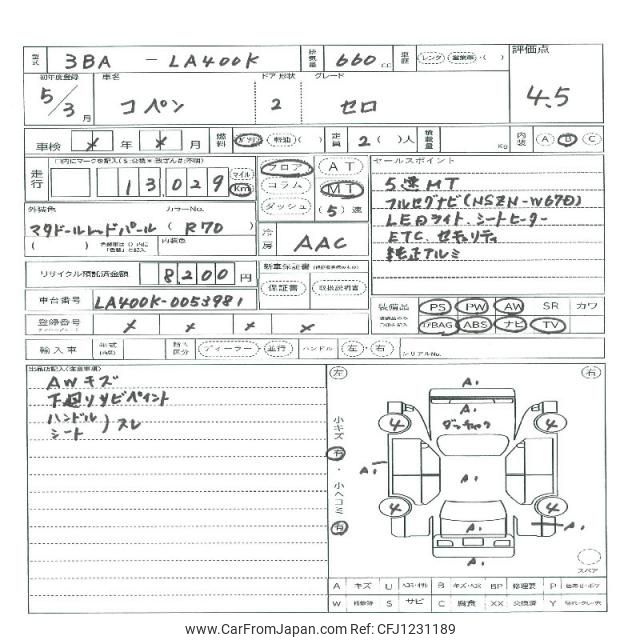 型式 3BA - LA400K 排気量 660 cc 車歴 レンタ・営業車・( ) 評価点
初年度登録 車名 ドア 形状 グレード
5/3月 コペン 2 セロ 4.5
車検 × 年 × 月 燃料 ガソリン・軽油・( ) 定員 2( )人 積載量 Kg 内装 A B C
走行 13,029 マイル Km フロア コラム ダッシュ AT MT (5)速
セールスポイント
5速MT
フルセグナビ(NSZN-W67D)
LEDライト、シートヒーター
ETC、セキュリティ
純正アルミ
外装色 カラーNo.
マタドールレッドパール ( R70 )
( ) 内装色 冷房 AAC
リサイクル預託済金額 8,200 円 新車保証書
保証書 取扱説明書
車台番号 LA400K-0053981
装備品 PS PW AW SR カワ
エアBAG ABS ナビ TV
登録番号 × × × ×
輸入車 年式 輸入区分 ディーラー・並行 ハンドル 左・右 シリアルNo.
出品店記入(注意事項)
AWキズ
下廻りサビペイント
ハンドル
シート ) スレ
左 右
小キズ 有 ・ 小ヘコミ 有
A1
A1
ダッチャク
4 4
A1 A1 A1
4 4
A1 A1
A1
スペア
A キズ U B キズ・ヘコミ BP 修理要 P
W 修理跡 S サビ C 腐食 XX 交換済 Y
www.CarFromJapan.com - CFJ1231189